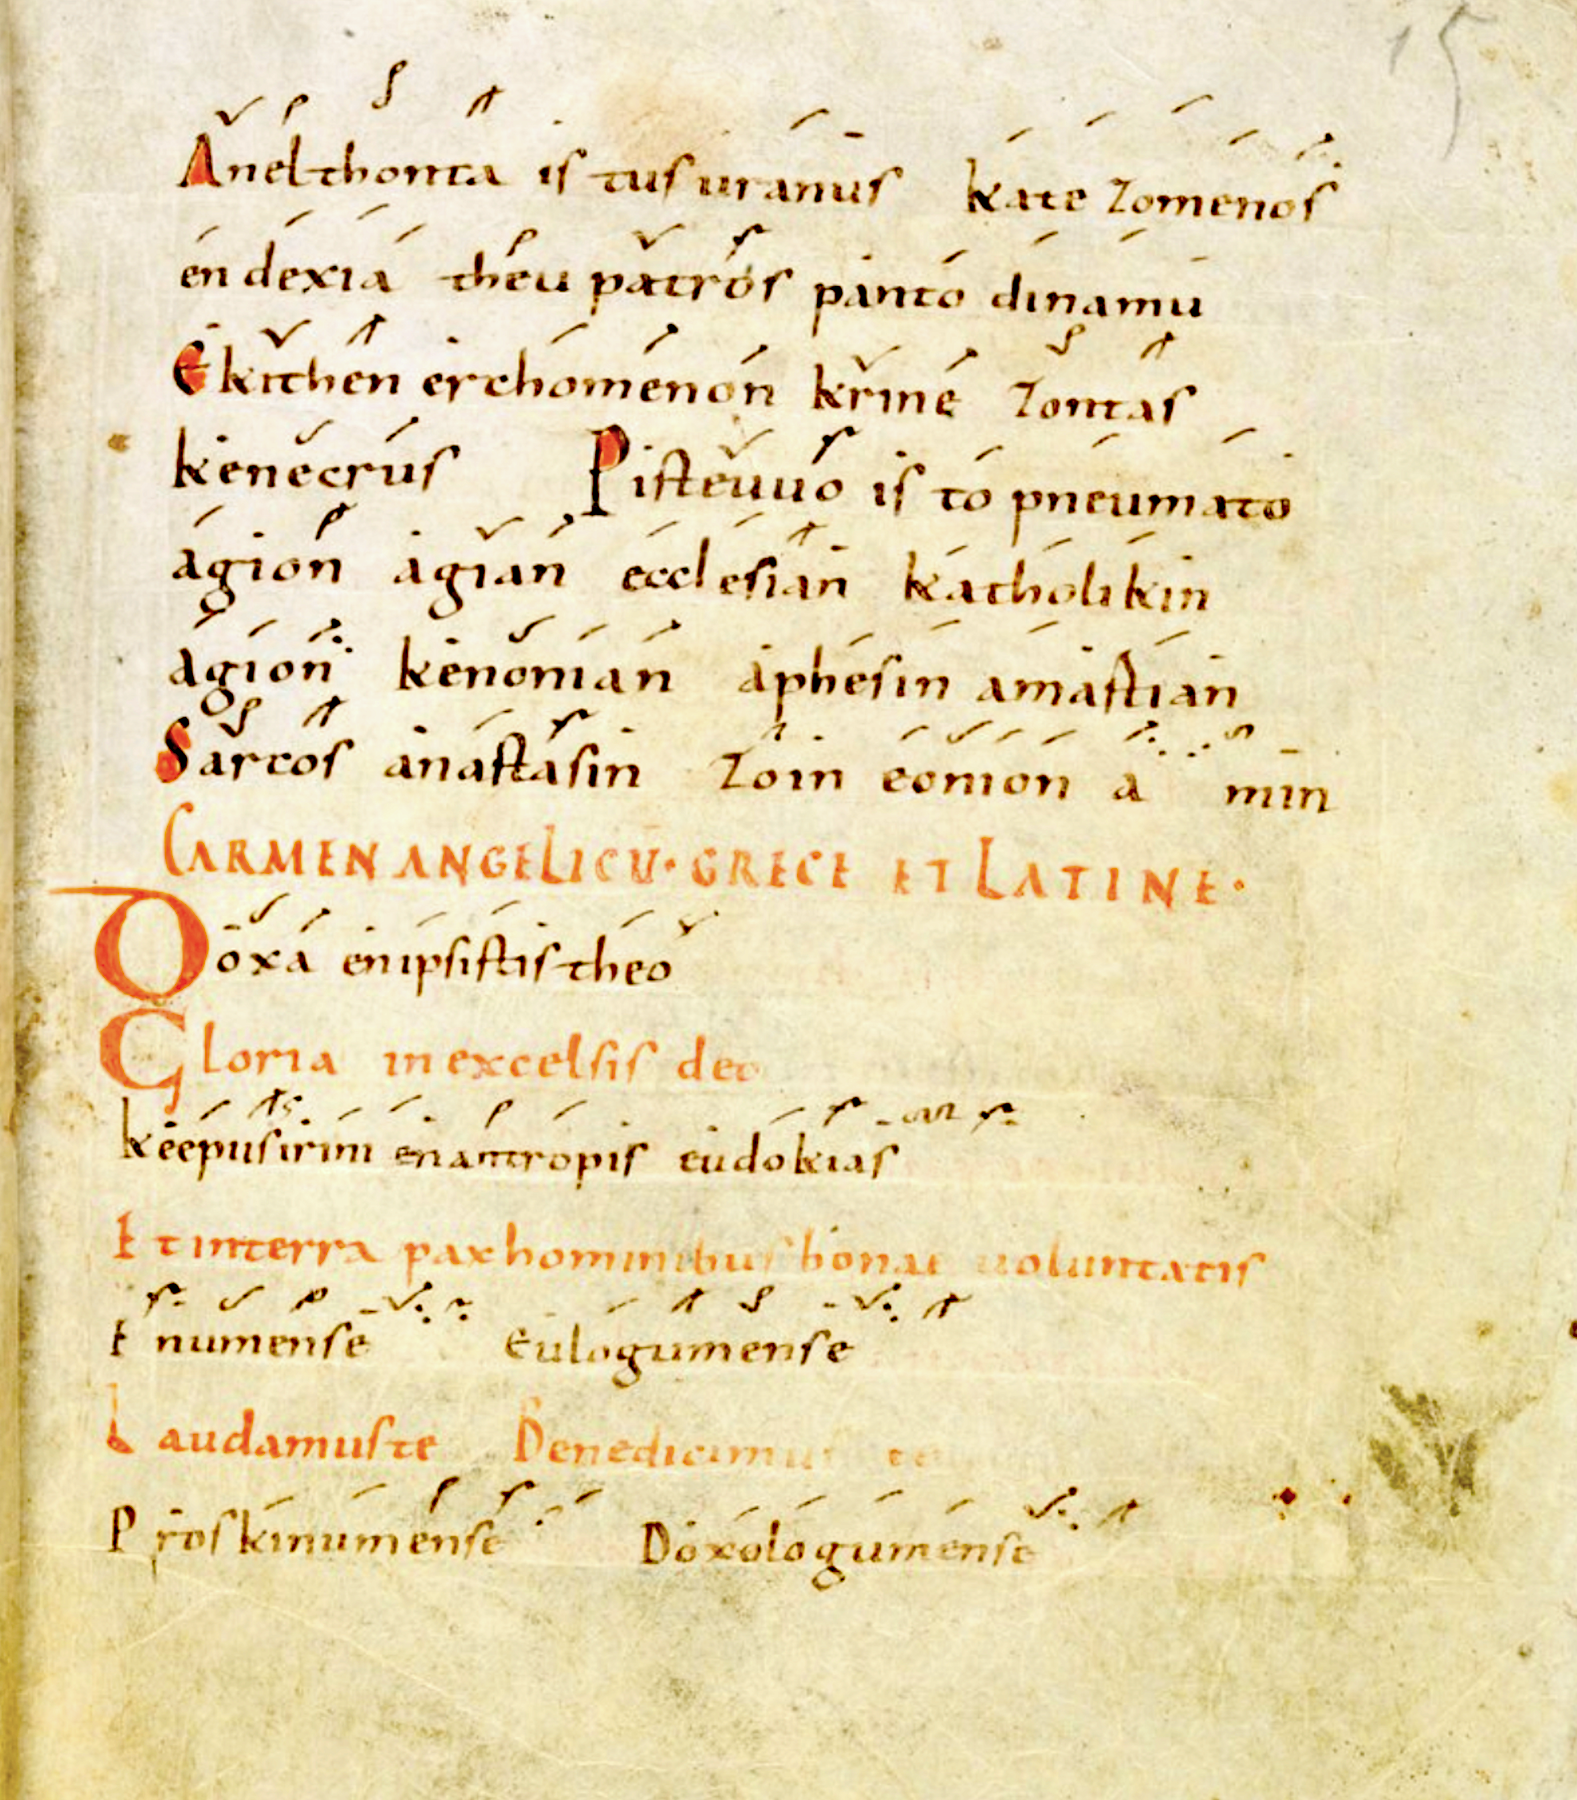 15
Anelthonta is tus uranus kate zomenos
en dexia theu patros panto dinamu
Ekithen erchomenon krine zontas
kenecrus Pisteuuo is to pneumato
agion agian ecclesian katholikin
agion kenonian aphesin amastian
Sartos anastasin zoin eonion a min
CARMEN ANGELICŪ· GRECE ET LATINE·
Doxa enipsistis theo
Gloria in excelsis deo
keepusirini enantropis eudokias
Et interra pax hominibus bonae uoluntatis
Enumense Eulogumense
Laudamus te Benedicimus te
Proskinumense Doxologumense